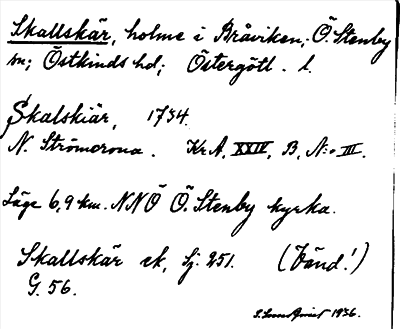 Skallskär, holme i Bråviken, Ö. Stenby
sn; Östkinds hd; Östergötl. l.
Skalskiär, 1734.
N. Strömcrona. Kr A. XXIV, B, N:o III.
Läge 6,9 km. NNÖ Ö. Stenby kyrka.
Skallskär ek, Sj. 251. (Vänd!)
G. 56.
1936.